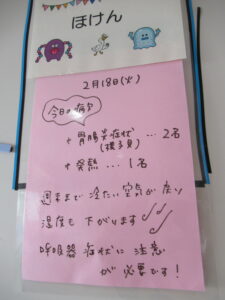 ほけん
2月18日(火)
今日の病気
+胃腸炎症状…2名
(様子見)
+発熱…1名
週末まで冷たい空気が戻り
湿度も下がります
呼吸器症状に注意
が必要です!